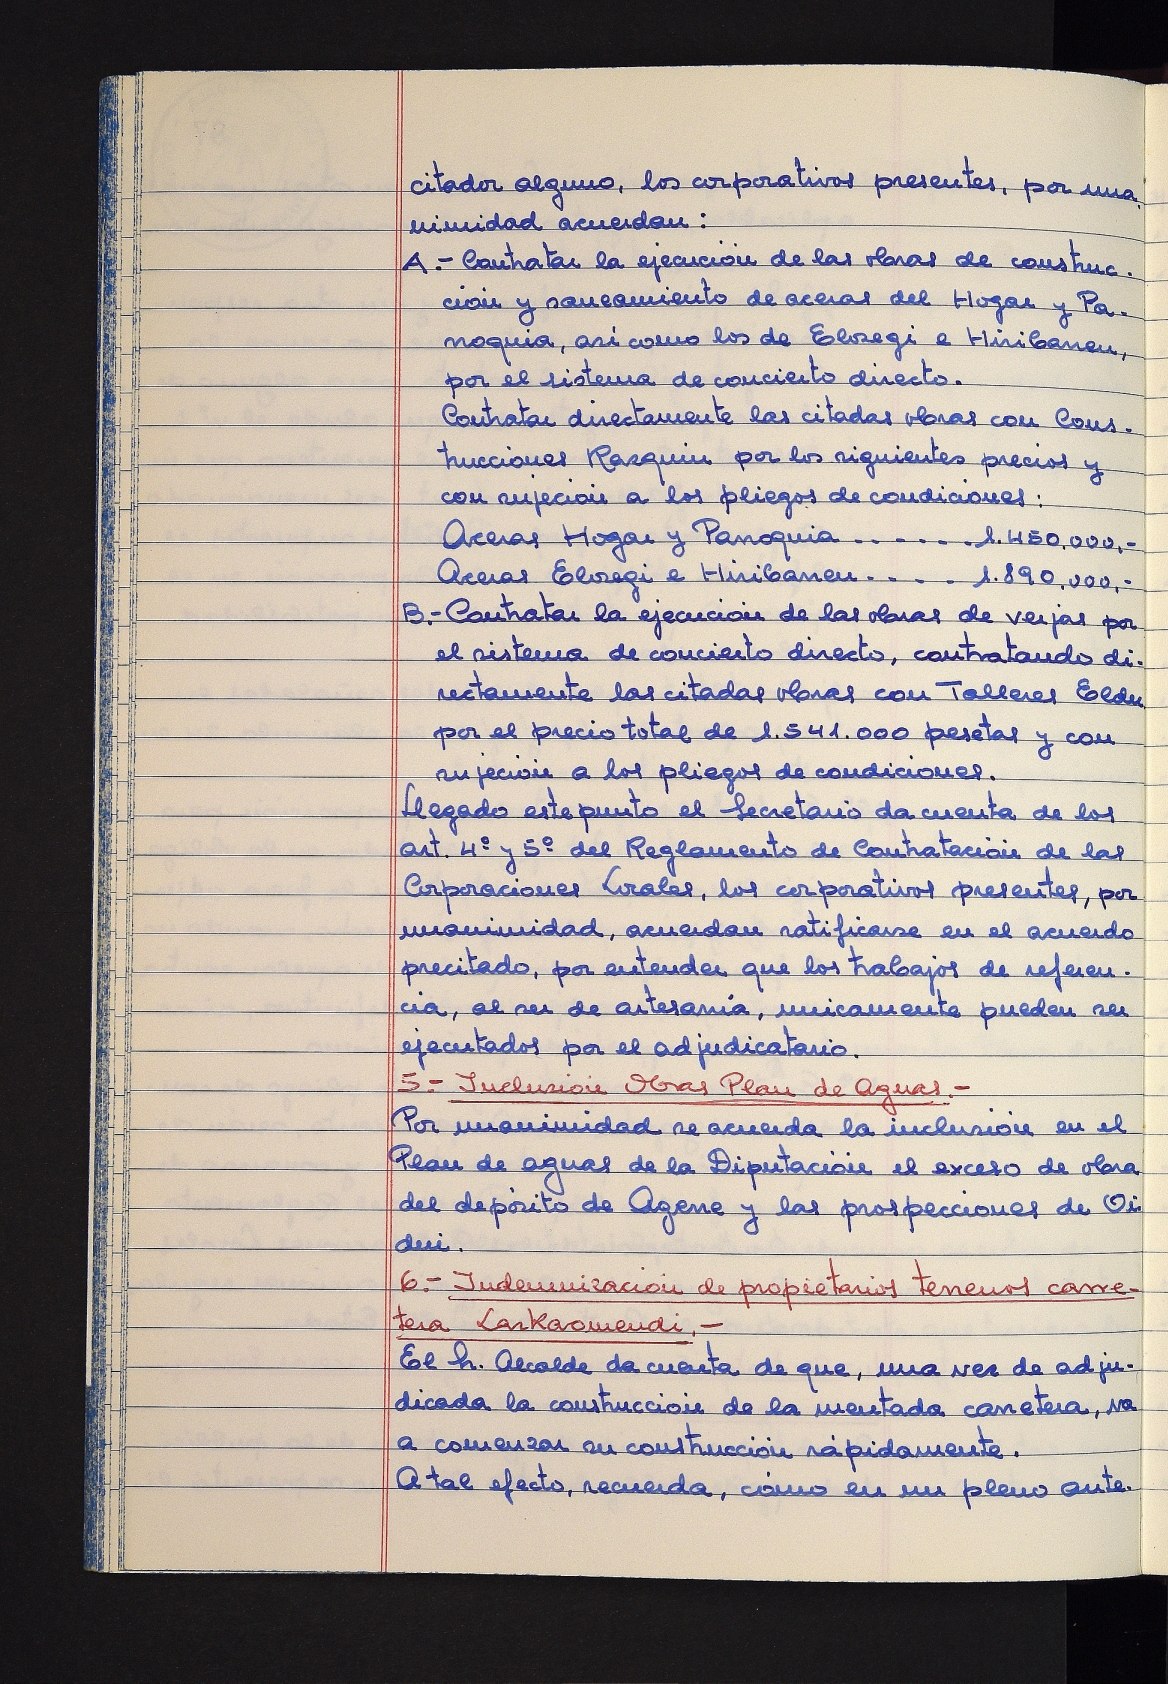 citador alguno, los corporativos presentes, por una-
nimidad acuerdan:
A.- Contratar la ejecución de las obras de construc-
ción y saneamiento de aceras del Hogar y Pa-
rroquia, así como los de Elosegi e Hiribarren,
por el sistema de concierto directo.
Contratar directamente las citadas obras con Cons-
trucciones Rasquin por los siguientes precios y
con sujeción a los pliegos de condiciones:
Aceras Hogar y Parroquia ...... 1.450.000,-
Aceras Elosegi e Hiribarren.... 1.890.000,-
B.- Contratar la ejecución de las obras de verjas por
el sistema de concierto directo, contratando di-
rectamente las citadas obras con Talleres Eldu
por el precio total de 1.541.000 pesetas y con
sujeción a los pliegos de condiciones.
Llegado este punto el Secretario da cuenta de los
art. 4º y 5º del Reglamento de Contratación de las
Corporaciones Locales, los corporativos presentes, por
unanimidad, acuerdan ratificarse en el acuerdo
precitado, por entender que los trabajos de referen-
cia, al ser de artesanía, unicamente pueden ser
ejecutados por el adjudicatario.
5.- Inclusión Obras Plan de Aguas.-
Por unanimidad se acuerda la inclusión en el
Plan de aguas de la Diputación el exceso de obra
del depósito de Agerre y las prospecciones de Oi-
dui.
6.- Indemnización de propietarios terrenos carre-
tera Larkaomendi.-
El h. Alcalde da cuenta de que, una vez de adju-
dicada la construcción de la mentada carretera, va
a comenzar su construcción rápidamente.
A tal efecto, recuerda, cómo en un pleno ante-